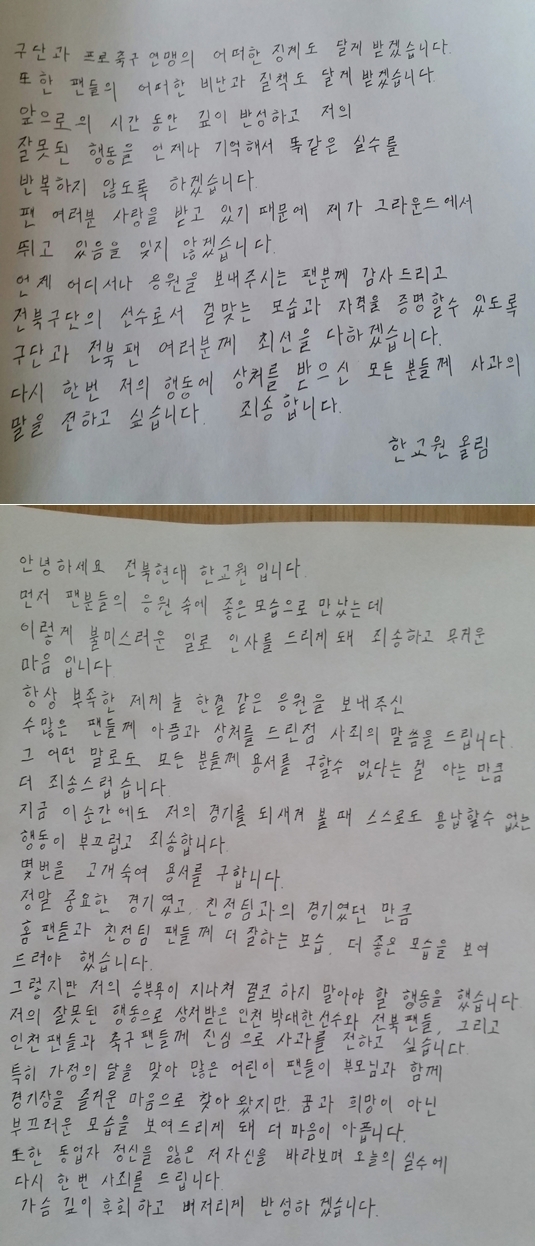 구단과 프로축구 연맹의 어떠한 징계도 달게 받겠습니다.
또한 팬들의 어떠한 비난과 질책도 달게 받겠습니다.
앞으로의 시간 동안 깊이 반성하고 저의
잘못된 행동을 언제나 기억해서 똑같은 실수를
반복하지 않도록 하겠습니다.
팬 여러분 사랑을 받고 있기 때문에 제가 그라운드에서
뛰고 있음을 잊지 않겠습니다.
언제 어디서나 응원을 보내주시는 팬분께 감사드리고
전북구단의 선수로서 걸맞는 모습과 자격을 증명할수 있도록
구단과 전북 팬 여러분께 최선을 다하겠습니다.
다시 한번 저의 행동에 상처를 받으신 모든 분들께 사과의
말을 전하고 싶습니다. 죄송합니다.
한교원 올림
안녕하세요 전북현대 한교원입니다.
먼저 팬분들의 응원 속에 좋은모습으로 만났는데
이렇게 불미스러운 일로 인사를 드리게돼 죄송하고 무거운
마음입니다
항상 부족한 제게 늘 한결 같은 응원을 보내주신
수많은 팬들께 아픔과 상처를 드린점 사죄의 말씀을 드립니다.
그 어떤 말로도 모든 분들께 용서를 구할수 없다는 걸 아는 만큼
더 죄송스럽습니다.
지금 이순간에도 저의 경기를 되새겨 볼 때 스스로도 용납할수 없는
행동이 부끄럽고 죄송합니다.
몇번을 고개숙여 용서를 구합니다.
정말 중요한 경기였고, 친정팀과의 경기였던 만큼
홈 팬들과 친정팀 팬들께 더 잘하는 모습, 더 좋은 모습을 보여
드려야 했습니다.
그렇지만 저의 승부욕이 지나쳐 결코 하지 말아야 할 행동을 했습니다.
저의 잘못된 행동으로 상처받은 인천 박대한선수와 전북팬들, 그리고
인천팬들과 축구팬들께 진심으로 사과를 전하고 싶습니다.
특히 가정의 달을 맞아 많은 어린이 팬들이 부모님과 함께
경기장을 즐거운 마음으로 찾아왔지만, 꿈과 희망이 아닌
부끄러운 모습을 보여드리게 돼 더 마음이 아픕니다.
또한 동업자 정신을 잃은 저자신을 바라보며 오늘의 실수에
다시 한번 사죄를 드립니다.
가슴 깊이 후회하고 뼈저리게 반성하겠습니다.